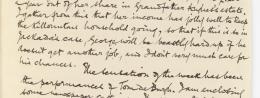 out of her share in Grandfather Keyser's estate,
I gather from this that her income has fully to keep
the Killountain household going, so that if this is in
Jerkada's case, George will be beastly hard up if he
doesn't get another job, and I don't very much care for
his chances. The sensation of the week has been
the performances of Tom de Burgh. I am enclosing
some newspaper